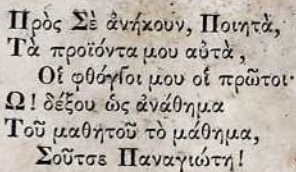 Πρὸς Σὲ ἀνήκουν, Ποιητὰ,
Τὰ προϊόντα μου αὐτὰ,
Οἱ φθόγγοι μου οἱ πρῶτοι·
Ω! δέξου ὡς ἀνάθημα
Τοῦ μαθητοῦ τὸ μάθημα,
Σοῦτσε Παναγιώτη!